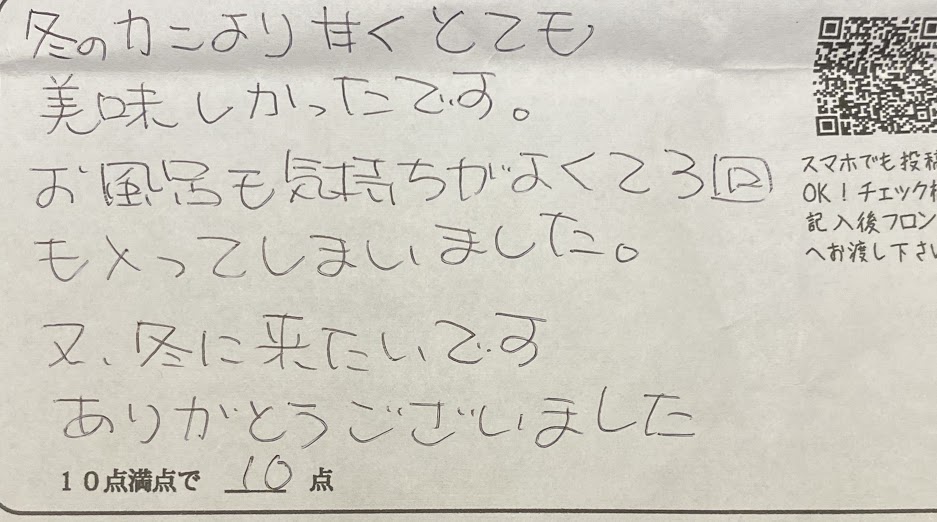 冬のカニより甘くとても
美味しかったです。
お風呂も気持ちがよくて3回
も入ってしまいました。
又、冬に来たいです
ありがとうございました
10点満点で 10 点
スマホでも投稿
OK!チェック
記入後フロン
へお渡し下さい